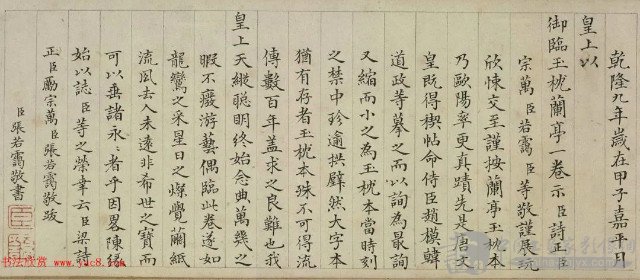 乾隆九年歲在甲子嘉平月
皇上以
御臨玉枕蘭亭一卷示臣詩正臣
宗萬臣若靄臣等敬謹展玩
欣悚交至謹按蘭亭玉枕本
乃歐陽率更真蹟先是唐文
皇既得楔帖命侍臣趙模韓
道政等摹之而以詢為最詢
又縮而小之為玉枕本當時刻
之禁中珍逾拱璧然大字本
猶有存者玉枕本殊不可得流
傳數百年蓋求之良難也我
皇上天縱聰明終始念典萬幾之
暇不廢游藝偶臨此卷遂如
龍鸞之采星日之燦覺繭紙
流風去人未遠非希世之寶而
可以垂諸永々者乎因畧陳緣
始以誌臣等之榮幸云臣梁詩
正臣勵宗萬臣張若靄敬跋
臣張若靄敬書
书法欣赏 www.yac8.com